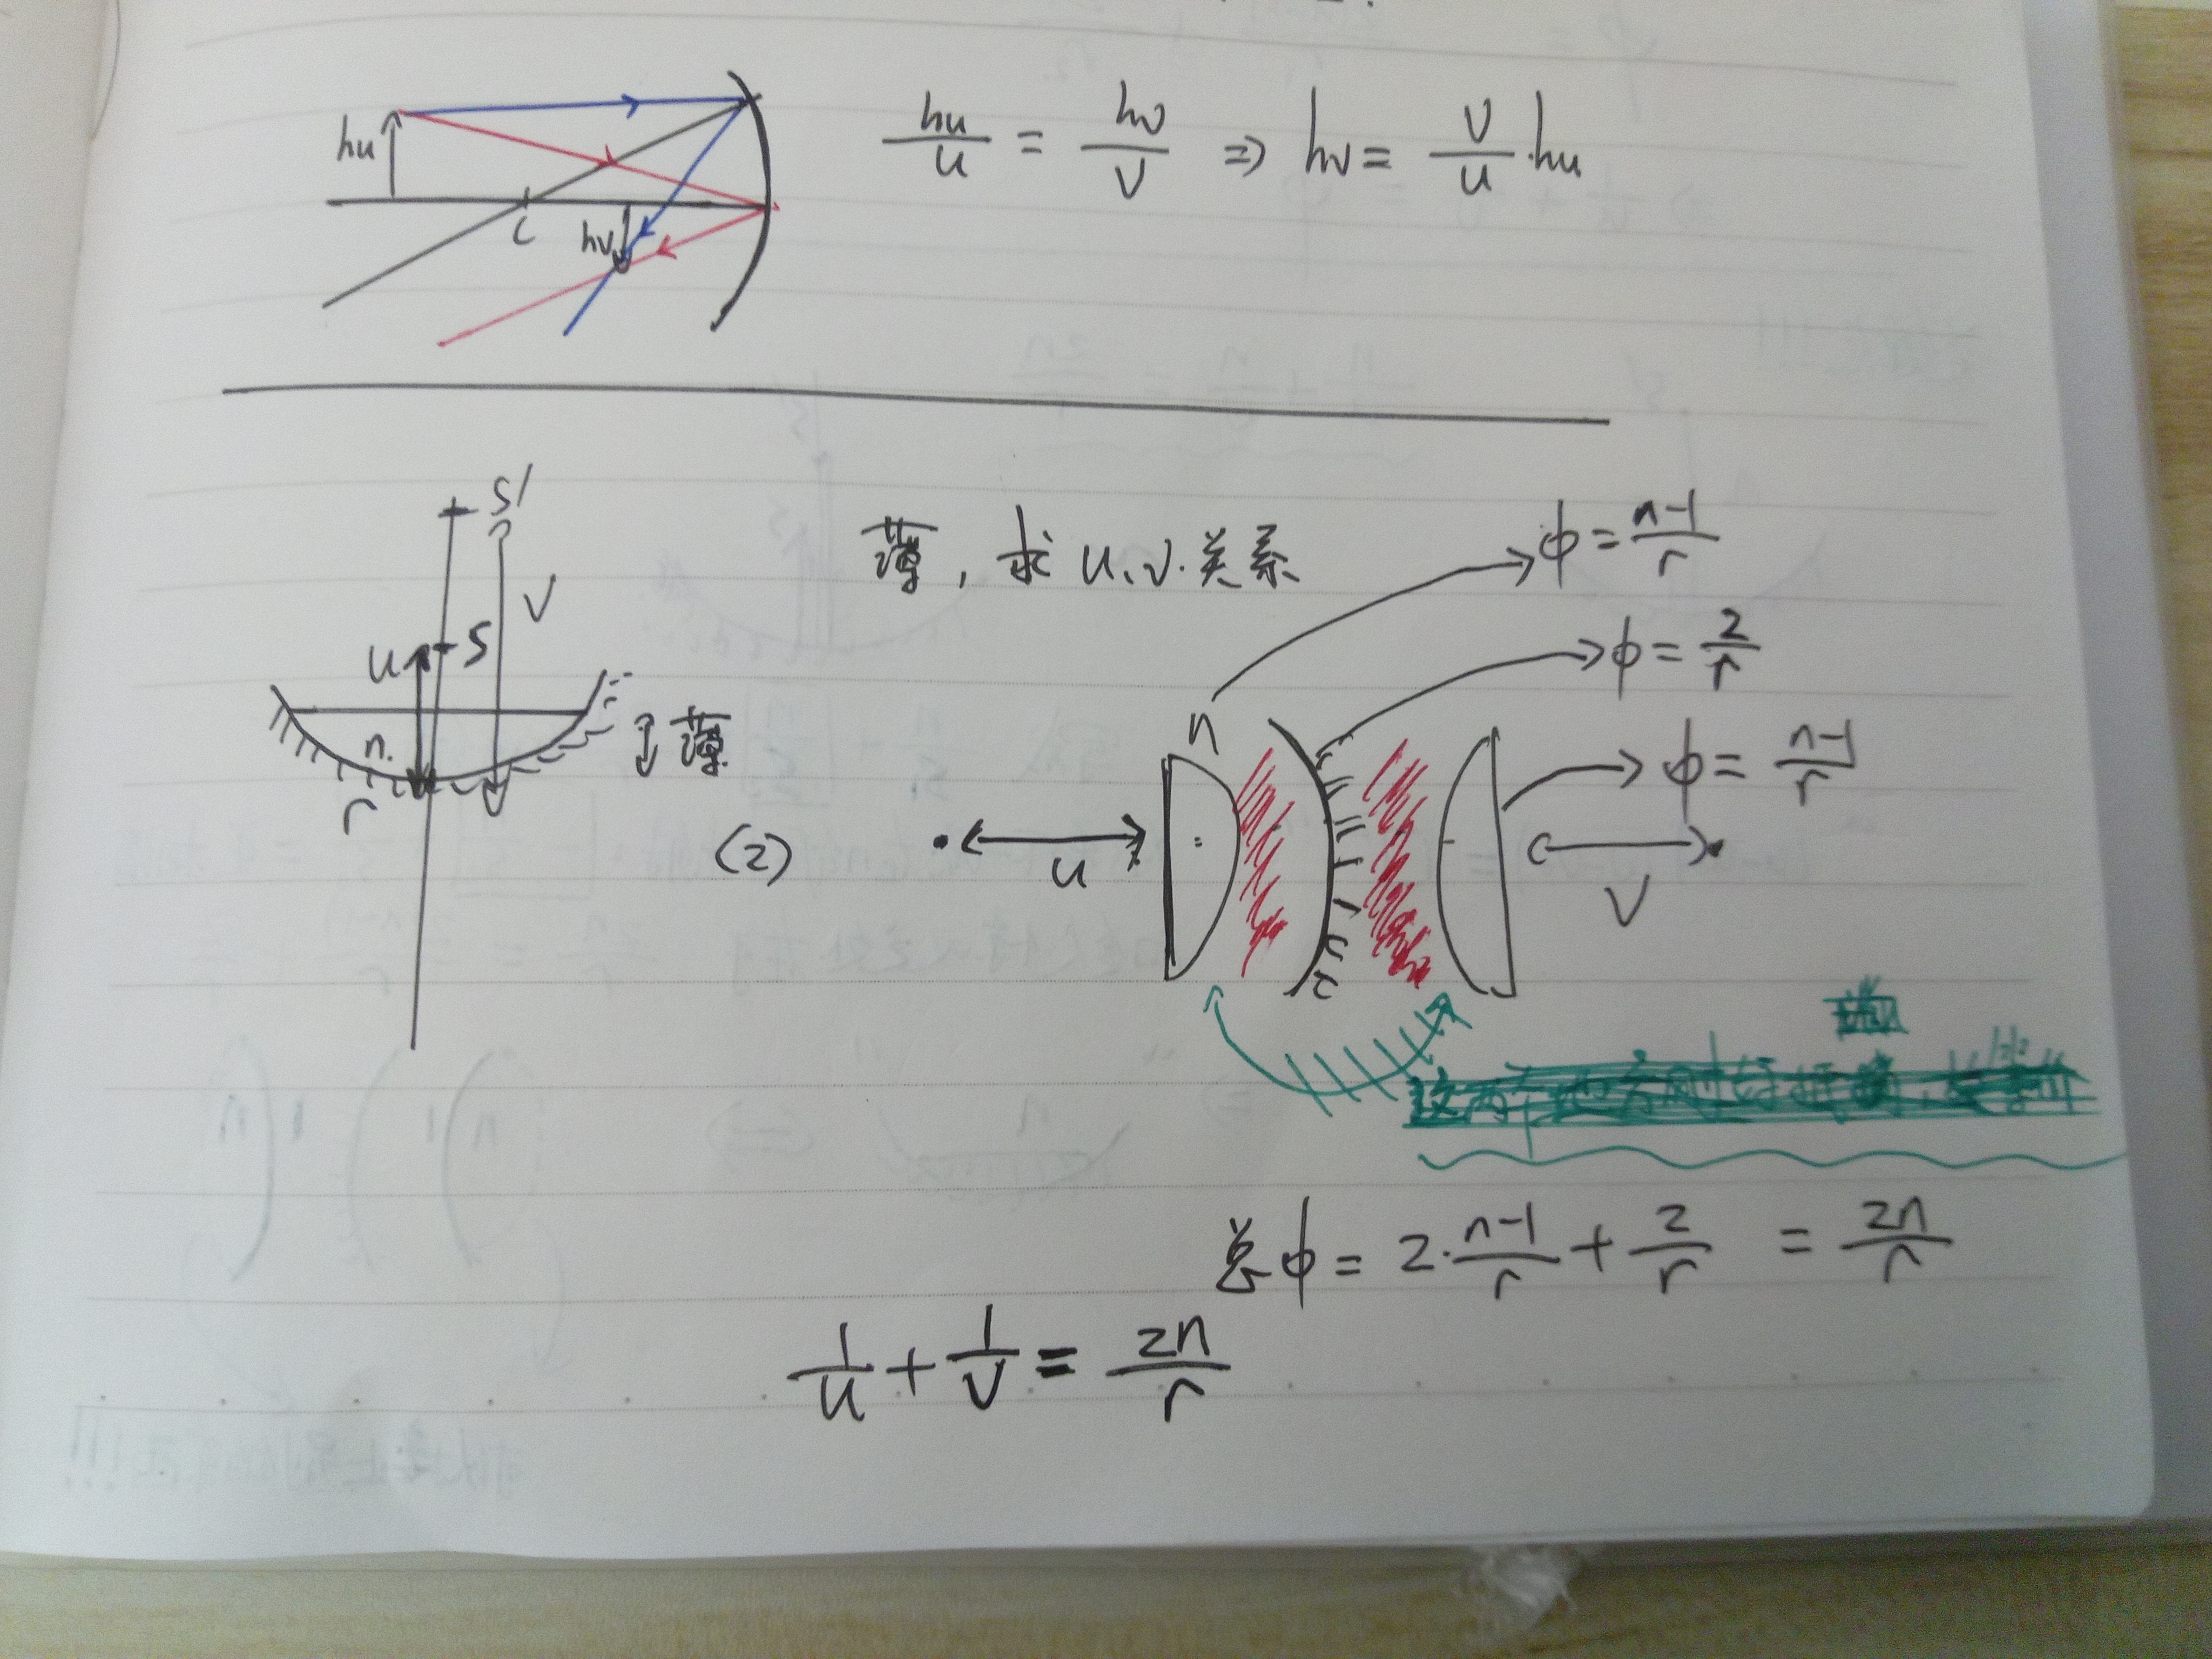 hu
C
hv
hu/u = hv/v ⇒ hv = v/u · hu
S'
V
薄，求 u、v. 关系
ϕ = n-1/r
u
S
ϕ = 2/r
n.
薄
n
ϕ = n-1/r
r
(2)
u
V
总 ϕ = 2· n-1/r + 2/r = 2n/r
1/u + 1/v = 2n/r